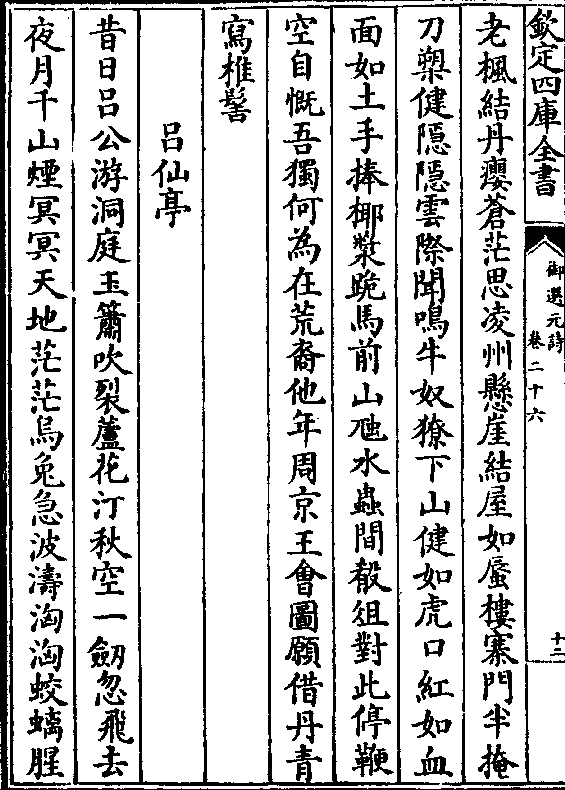 欽定四庫全書
御選元詩
卷二十六
十二
老楓結丹癭蒼茫思凌州懸崖結屋如蜃樓寨門半掩
刀槊健隠隠雲際聞鳴牛奴獠下山健如虎口紅如血
面如土手捧椰漿跪馬前山虺水蟲間殽俎對此停鞭
空自慨吾獨何為在荒裔他年周京王會圖願借丹青
寫椎髻
吕仙亭
昔日吕公游洞庭玉簫吹裂蘆花汀秋空一劒忽飛去
夜月千山煙冥冥天地茫茫烏兎急波濤洶洶蛟螭腥